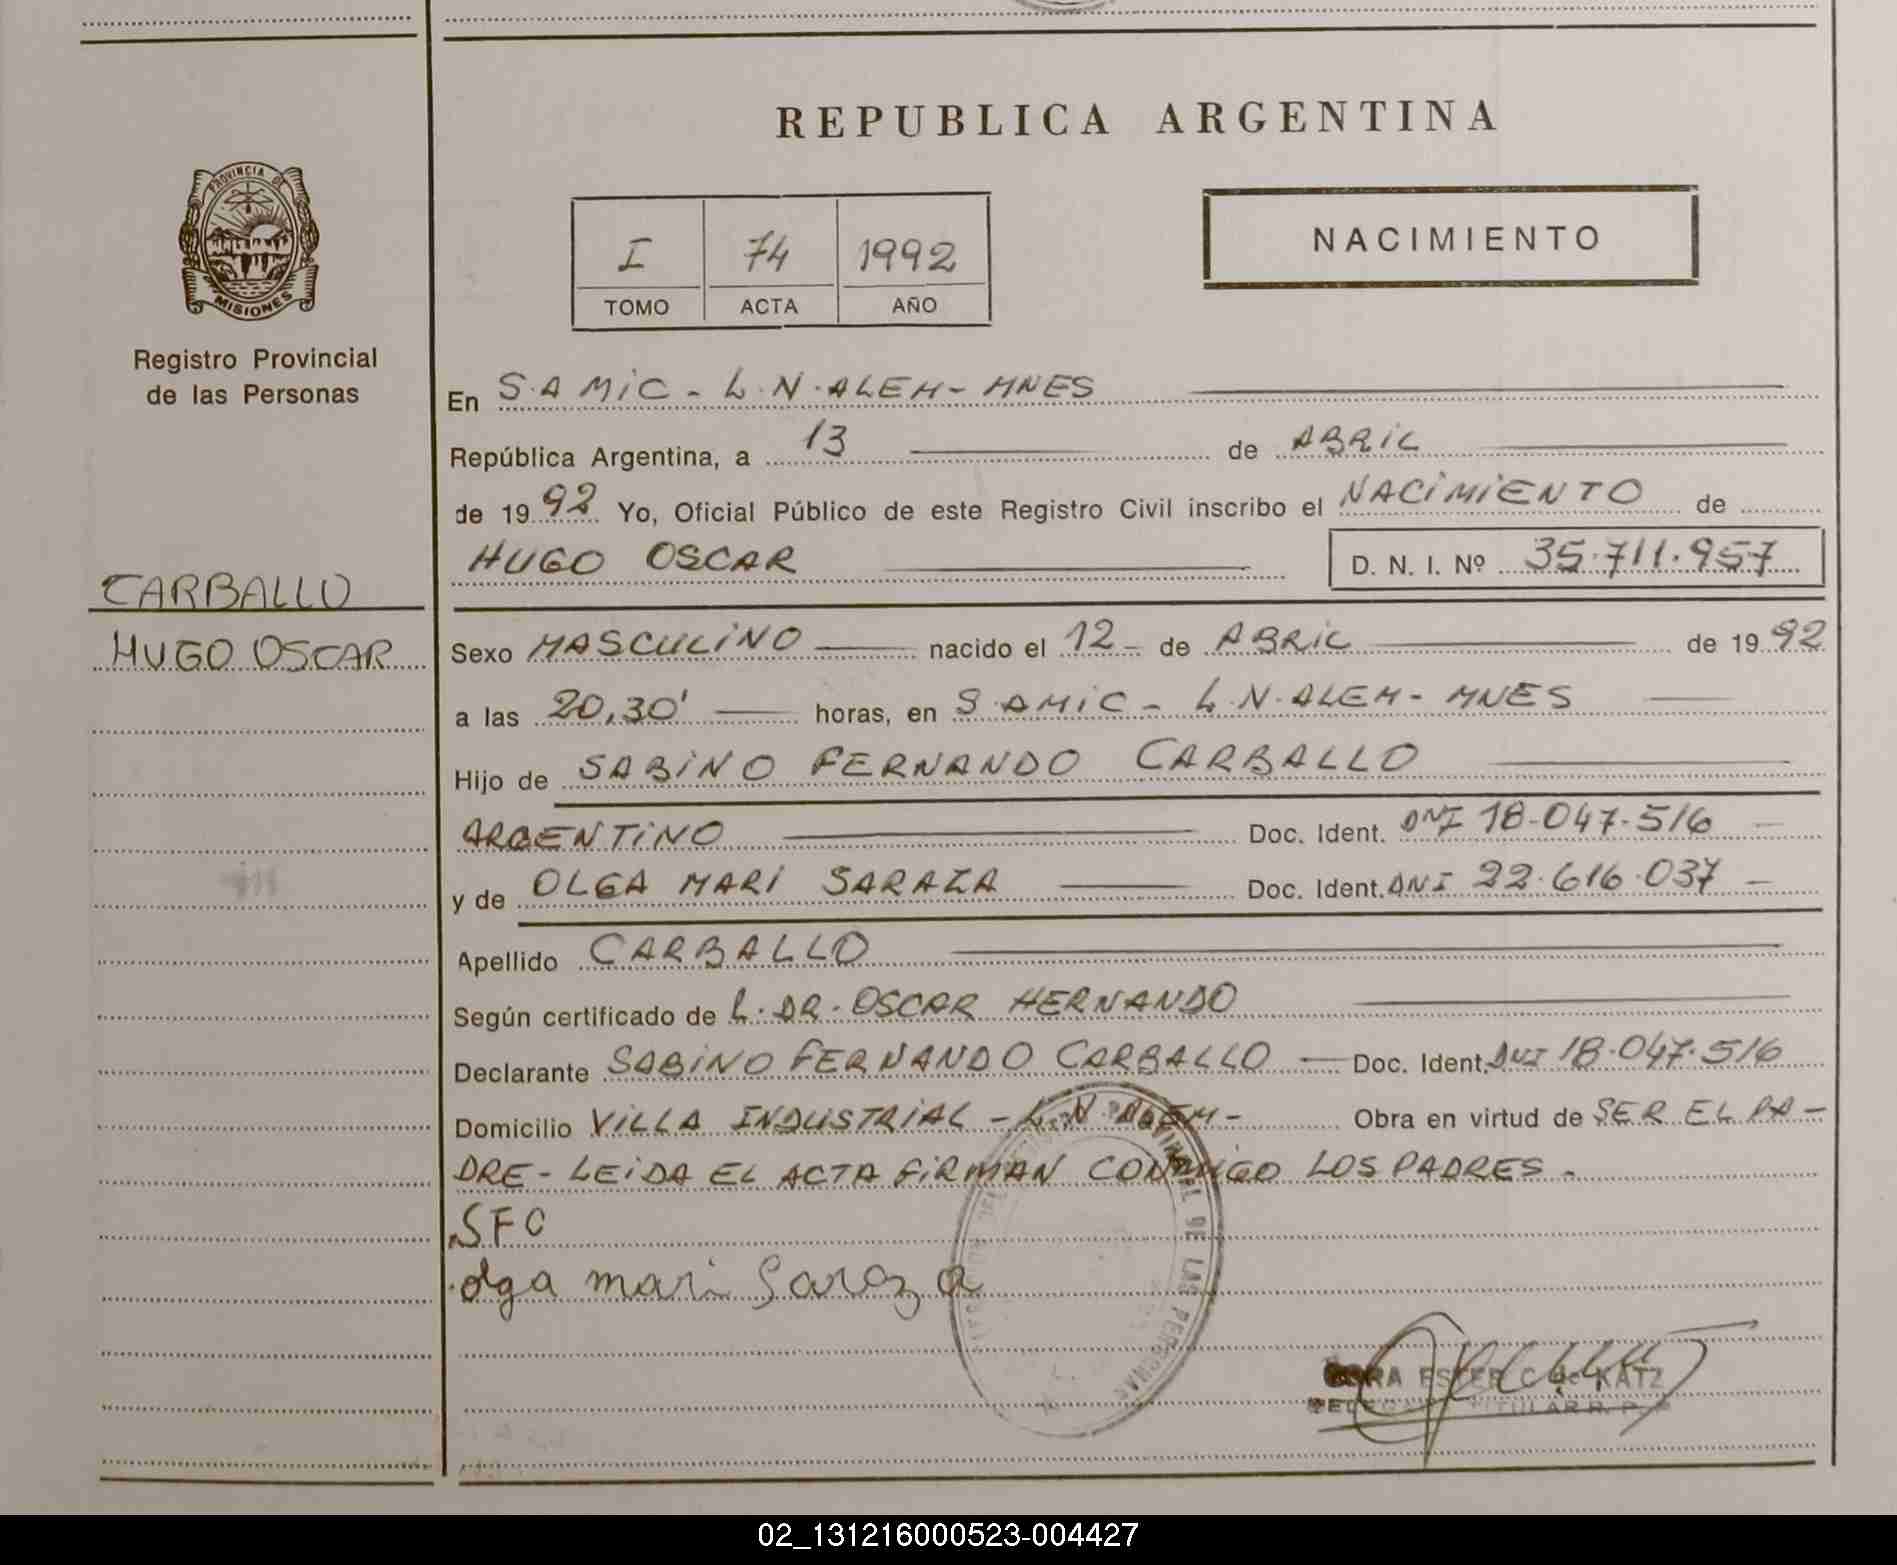 REPUBLICA ARGENTINA
PROVINCIA DE
MISIONES
Registro Provincial
de las Personas
I 74 1992
TOMO ACTA AÑO
NACIMIENTO
En S.A MiC - L.N.ALEM - MNES
República Argentina, a 13 de ABRiL
de 1992 Yo, Oficial Público de este Registro Civil inscribo el NACiMiENTO de
HUGO OSCAR D. N. I. Nº 35.711.957
CARBALLO
HUGO OSCAR
Sexo MASCULiNO nacido el 12 - de ABRiL de 1992
a las 20,30' horas, en S.A MiC - L.N.ALEM - MNES
Hijo de SABiNO FERNANDO CARBALLO
ARGENTiNO Doc. Ident. DNI 18.047.516 -
y de OLGA MARI SARAZA Doc. Ident. DNI 22.616.037 -
Apellido CARBALLO
Según certificado de L. DR. OSCAR HERNANDO
Declarante SABiNO FERNANDO CARBALLO Doc. Ident. DNI 18.047.516
Domicilio ViLLA INDUSTRiAL - L.N ALEM - Obra en virtud de SER EL PA -
DRE - LEiDA EL ACTA FiRMAN CONMiGO LOS PADRES -
SFC
olga mari Saraza
DE LAS PERSONAS
ESTER C. de KATZ
TITULAR R. P. P.
02_131216000523-004427